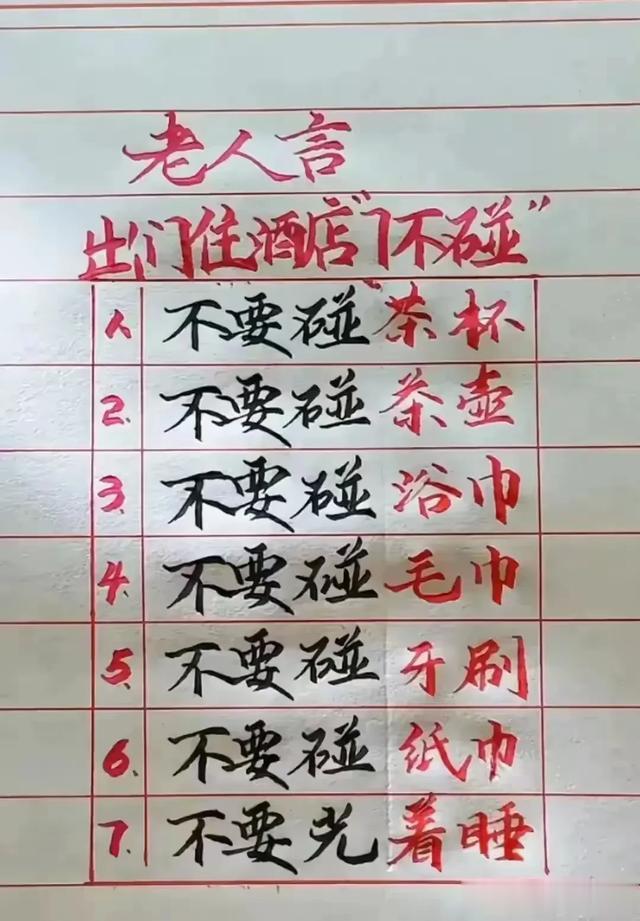 老人言
出门住酒店"7不碰"
1、不要碰茶杯
2、不要碰茶壶
3、不要碰浴巾
4、不要碰毛巾
5、不要碰牙刷
6、不要碰纸巾
7、不要光着睡